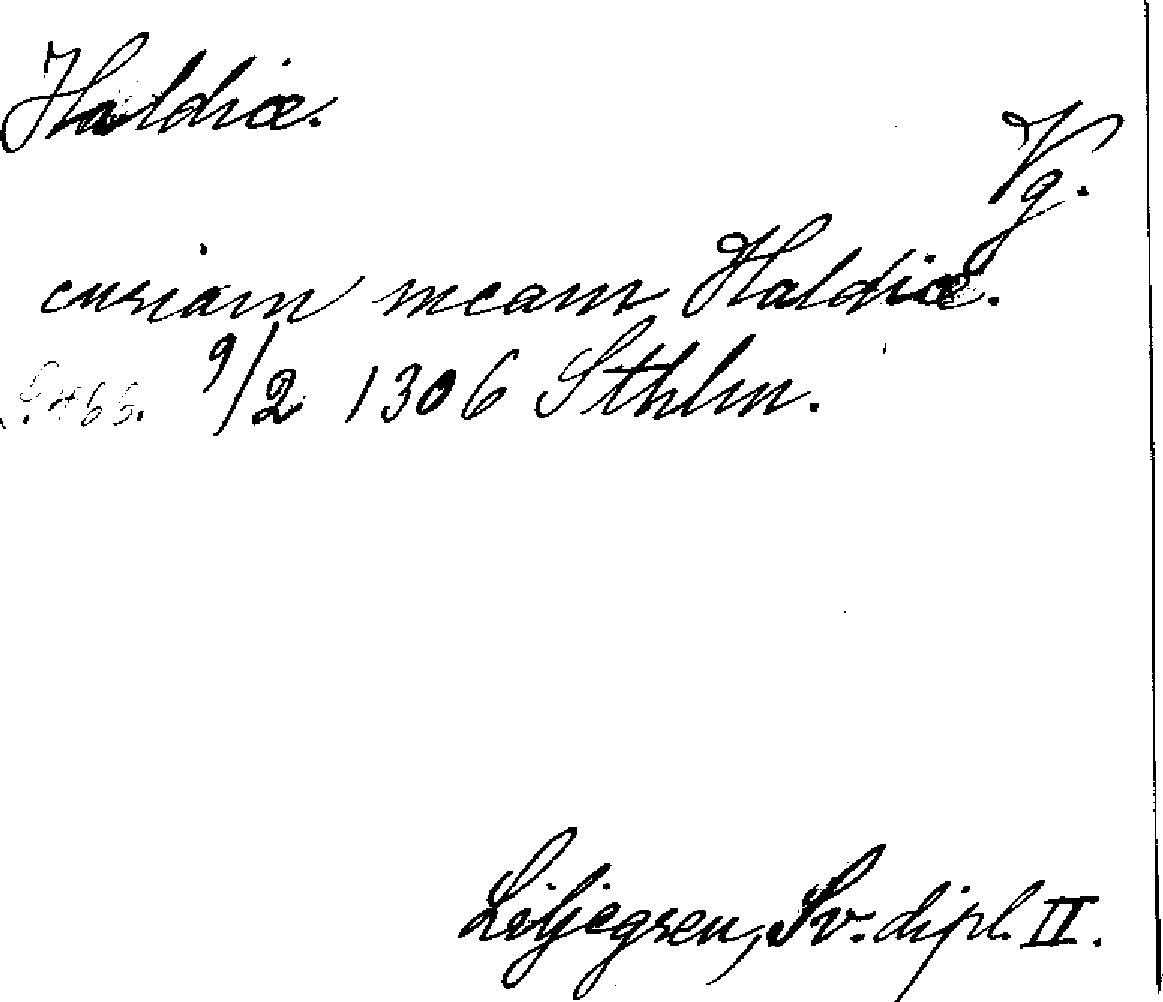 Haldiæ.
Vg.
curiam meam Haldiæ.
S. 466. 9/2 1306 Sthlm.
Liljegren, Sv. dipl. II.